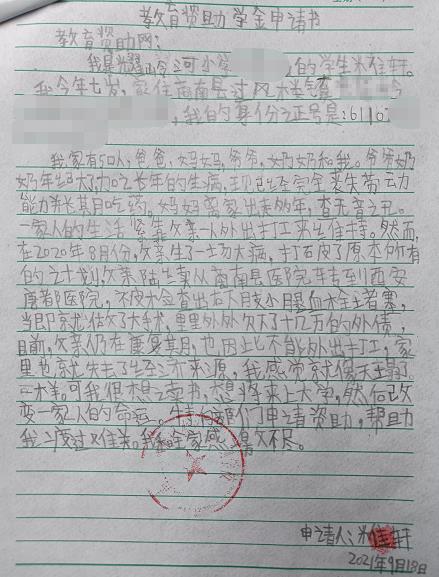 教育资助学金申请书
教育资助网：
我是光耀 小学 的学生米佳轩。
我今年七岁，家住商南县过风木
，我的身份证号是：6110
我家有5口人，爸爸，妈妈，爷爷，奶奶和我。爷爷奶
奶年纪大了，加之长年的生病，现已经完全丧失劳动
能力，并长期吃药。妈妈离家出走多年，查无音讯。
一家人的生活紧靠父亲一人外出打工来维持。然而，
在2020年8月份，父亲生了一场大病，打击皮了原本所有
的计划，父亲陆续从商南县医院车专到西安
唐都医院，不皮检查出右大月支小月退血木全堵塞，
当即就做了大手术，里里外外欠下十几万的外债，
目前，父亲仍在康复期，也因此不能外出打工，家
里也就失去了经济来源，我感觉就像天塌了
一样。可我很想读书，想将来上大学，然后改
变一家人的命运。 们申请资助，帮助
我们度过难关。我和全家感 不尽。
申请人：米佳轩
2021年9月18日